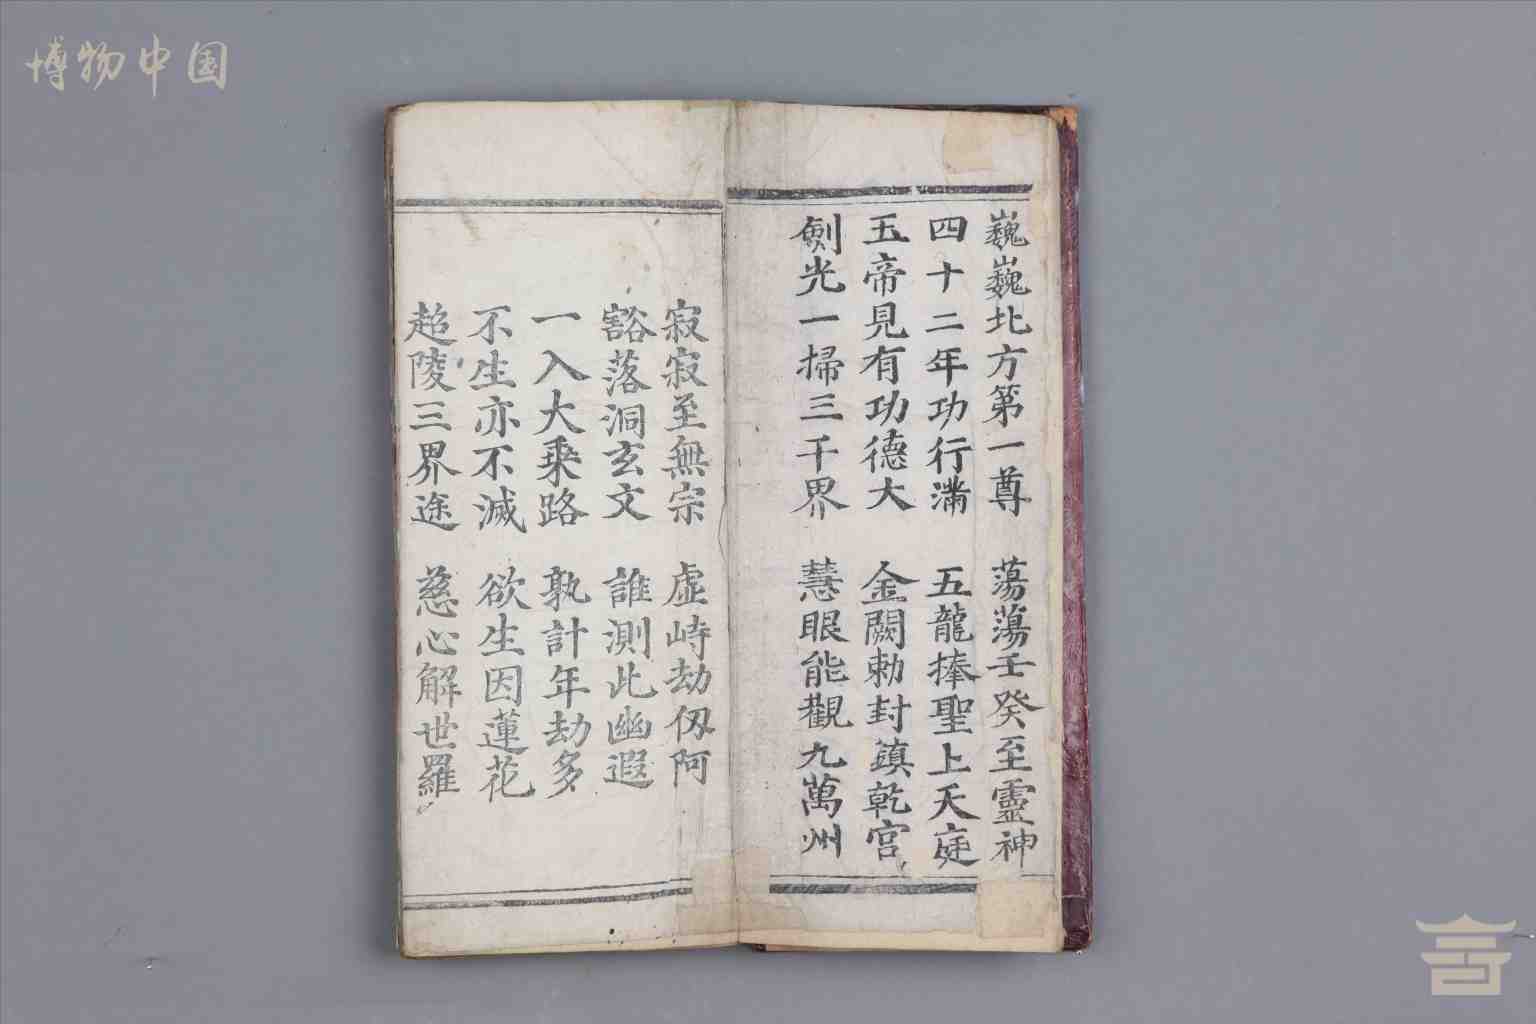 博物中国
巍巍北方第一尊 蕩蕩壬癸至靈神
四十二年功行滿 五龍捧聖上天庭
五帝見有功德大 金闕勅封鎮乾宫
劍光一掃三千界 慧眼能觀九萬州
寂寂至無宗 虛峙劫仭阿
豁落洞玄文 誰測此幽遐
一入大乘路 孰計年劫多
不生亦不滅 欲生因蓮花
超陵三界途 慈心解世羅